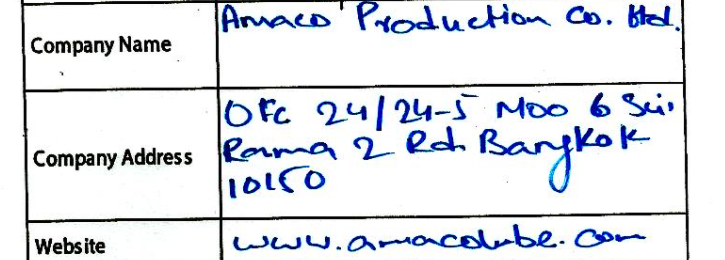 Company Name
Amaco Production Co. Ltd.
Company Address
Ofc 24/24-5 Moo 6 Soi.
Rama 2 Rd. Bangkok
10150
Website
www.amacolube.com